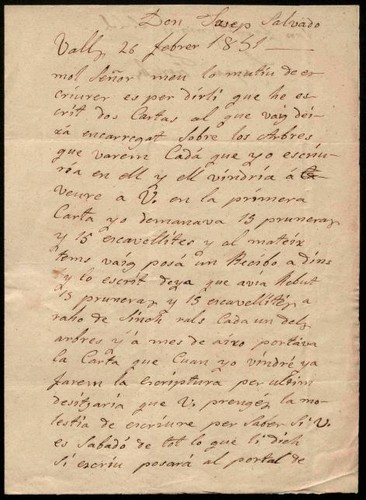 Don Josep Salvado
Valls 26 febrer 1851
mol Señor meu lo mutiu de es
criurer es per dirli que he es
crit dos Cartas al que vaig dei
xá encarregat Sobre los Arbres
que varem quedá que yo escriu
ria en ell y ell vindria á
veure a V. en la primera
Carta yo demanava 15 pruneras
y 15 escavellites y al mateix
tems vaig posá un Recibo a dins
y lo escrit deya que avia Rebut
15 pruneras y 15 escavellites a
raho de Sinch rals Cada un dels
arbres y á mes de axo portava
la Carta que Cuan yo vindré ya
farem la escriptura per ultim
desitjaria que V. prengés la mo
lestia de escriure per Saber Si V.
es Sabadó de tot lo que li dich
Si escriu posará al portal de